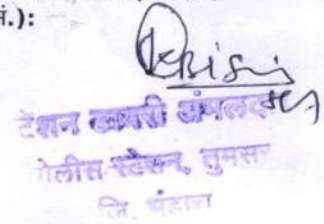 सं.):
टेशन डायरी अंमलदार
पोलीस स्टेशन, तुमसर
जि. भंडारा